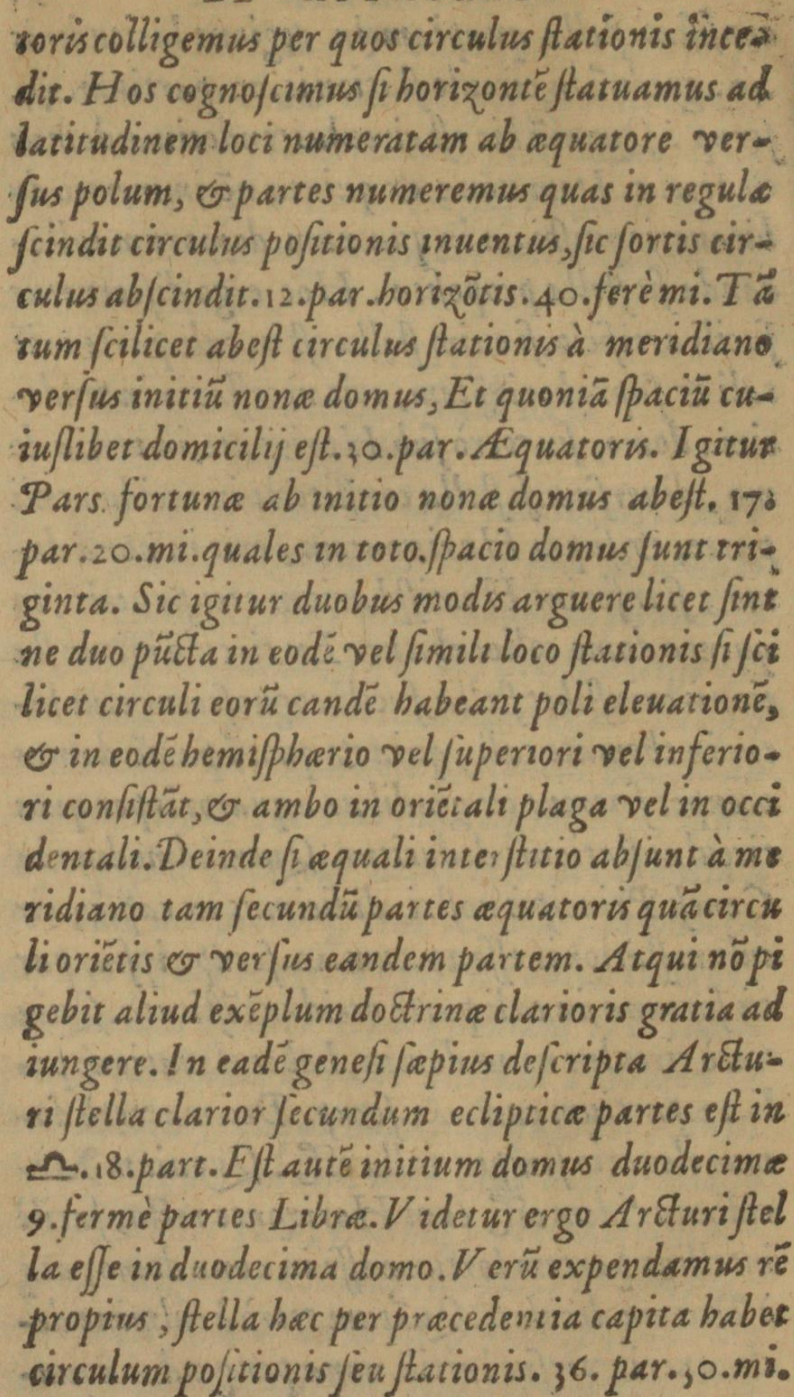 toris colligemus per quos circulus ſtationis incea
dit. Hos cognoſcimus ſi horizontē ſtatuamus ad
latitudinem loci numeratam ab æquatore ver-
ſus polum, & partes numeremus quas in regula
ſcindit circulus poſitionis inuentus, ſic ſortis cir-
culus abſcindit. 12. par. horizōtis. 40. ferè mi. Tā
tum ſcilicet abeſt circulus ſtationis à meridiano
verſus initiū nonæ domus, Et quoniā ſpaciū cu-
iuſlibet domicilij eſt. 30. par. Æquatoris. Igitur
Pars fortunæ ab initio nonæ domus abeſt. 17.
par. 20. mi. quales in toto. ſpacio domus ſunt tri-
ginta. Sic igitur duobus modis arguere licet ſint
ne duo pūcta in eodē vel ſimili loco ſtationis ſi ſci
licet circuli eorū candē habeant poli eleuationē,
& in eodē hemiſphærio vel ſuperiori vel inferio-
ri conſiſtāt, & ambo in oriētali plaga vel in occi
dentali. Deinde ſi æquali interſtitio abſunt à me
ridiano tam ſecundū partes æquatoris quā circu
li oriētis & verſus eandem partem. Atqui nō pi
gebit aliud exēplum doctrinæ clarioris gratia ad
iungere. In eadē geneſi ſæpius deſcripta Arctu-
ri ſtella clarior ſecundum eclipticæ partes eſt in
♎. 18. part. Eſt autē initium domus duodecimæ
9. fermè partes Libræ. Videtur ergo Arcturi ſtel
la eſſe in duodecima domo. Verū expendamus rē
propius, ſtella hæc per præcedentia capita habet
circulum poſitionis ſeu ſtationis. 36. par. 30. mi.